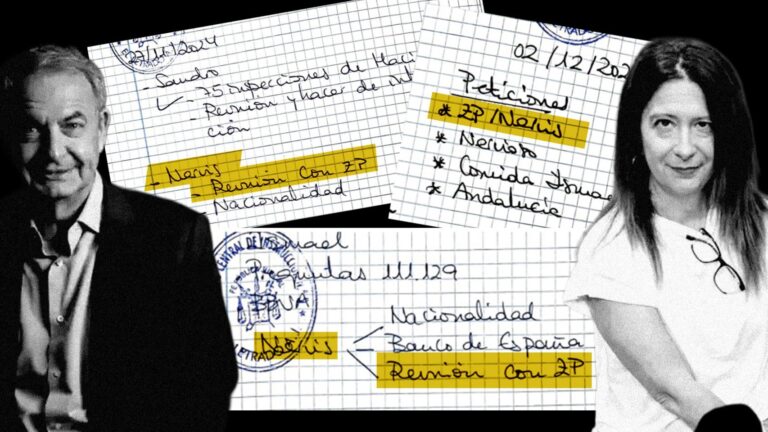 27/11/2024
- Sandro
- 75 inspecciones de Haci
- Reunión y hacer de int
ción
- Neris
- Reunión con ZP
- Nacionalidad
02/12/202
Peticiones
* ZP/Neris
*
* Comida Isma
* Andalucía
LETRADO
mael
111.129
Neris
Nacionalidad
Banco de España
Reunión con ZP
CENTRAL DE INSTRUCCI
LETRADO